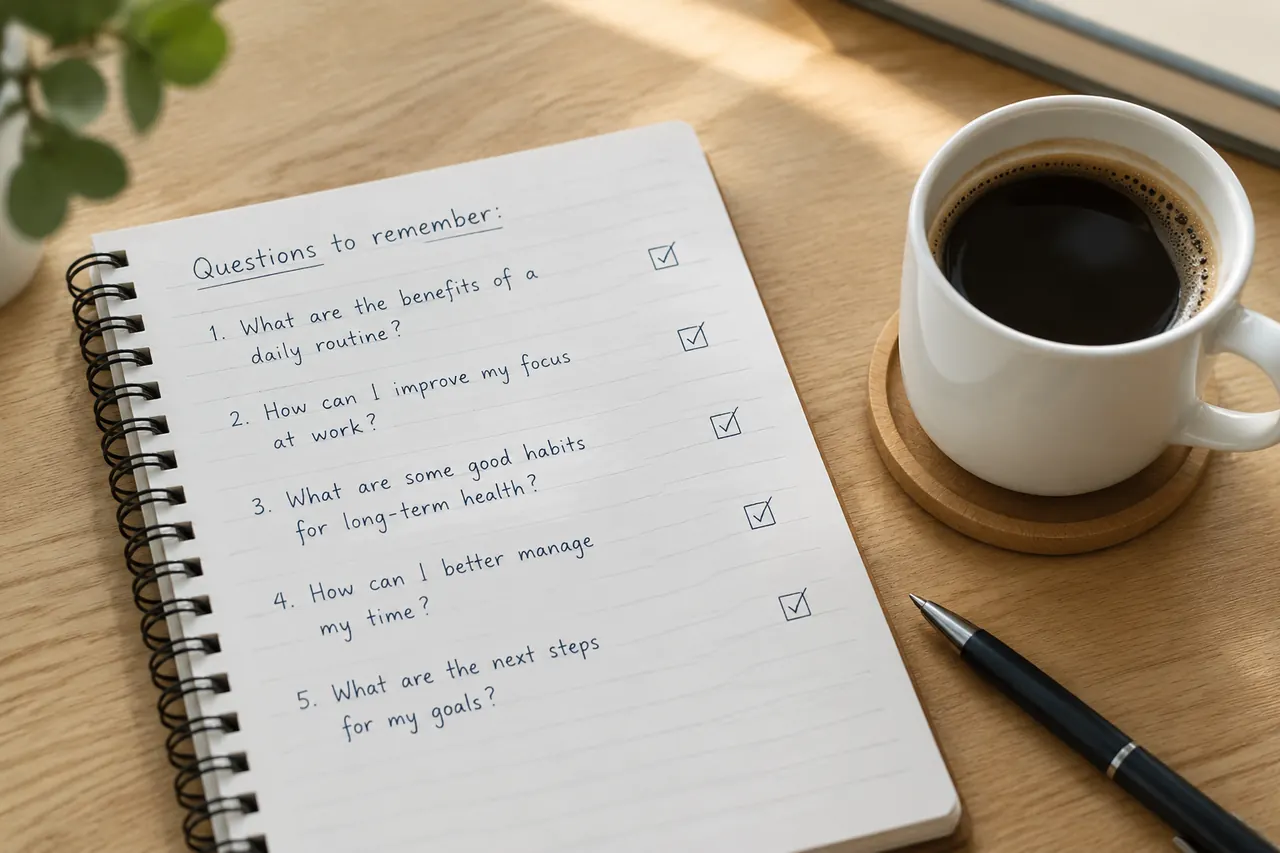 Questions to remember:
1. What are the benefits of a
daily routine?
2. How can I improve my focus
at work?
3. What are some good habits
for long-term health?
4. How can I better manage
my time?
5. What are the next steps
for my goals?